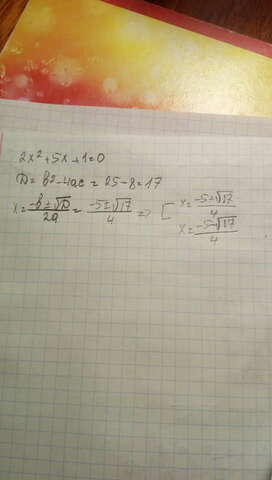 2x²+5x+1=0
D = b2-4ac = 25-8=17
x = -b±√D/2a = -5±√17/4 => [ x = -5+√17/4
x = -5-√17/4